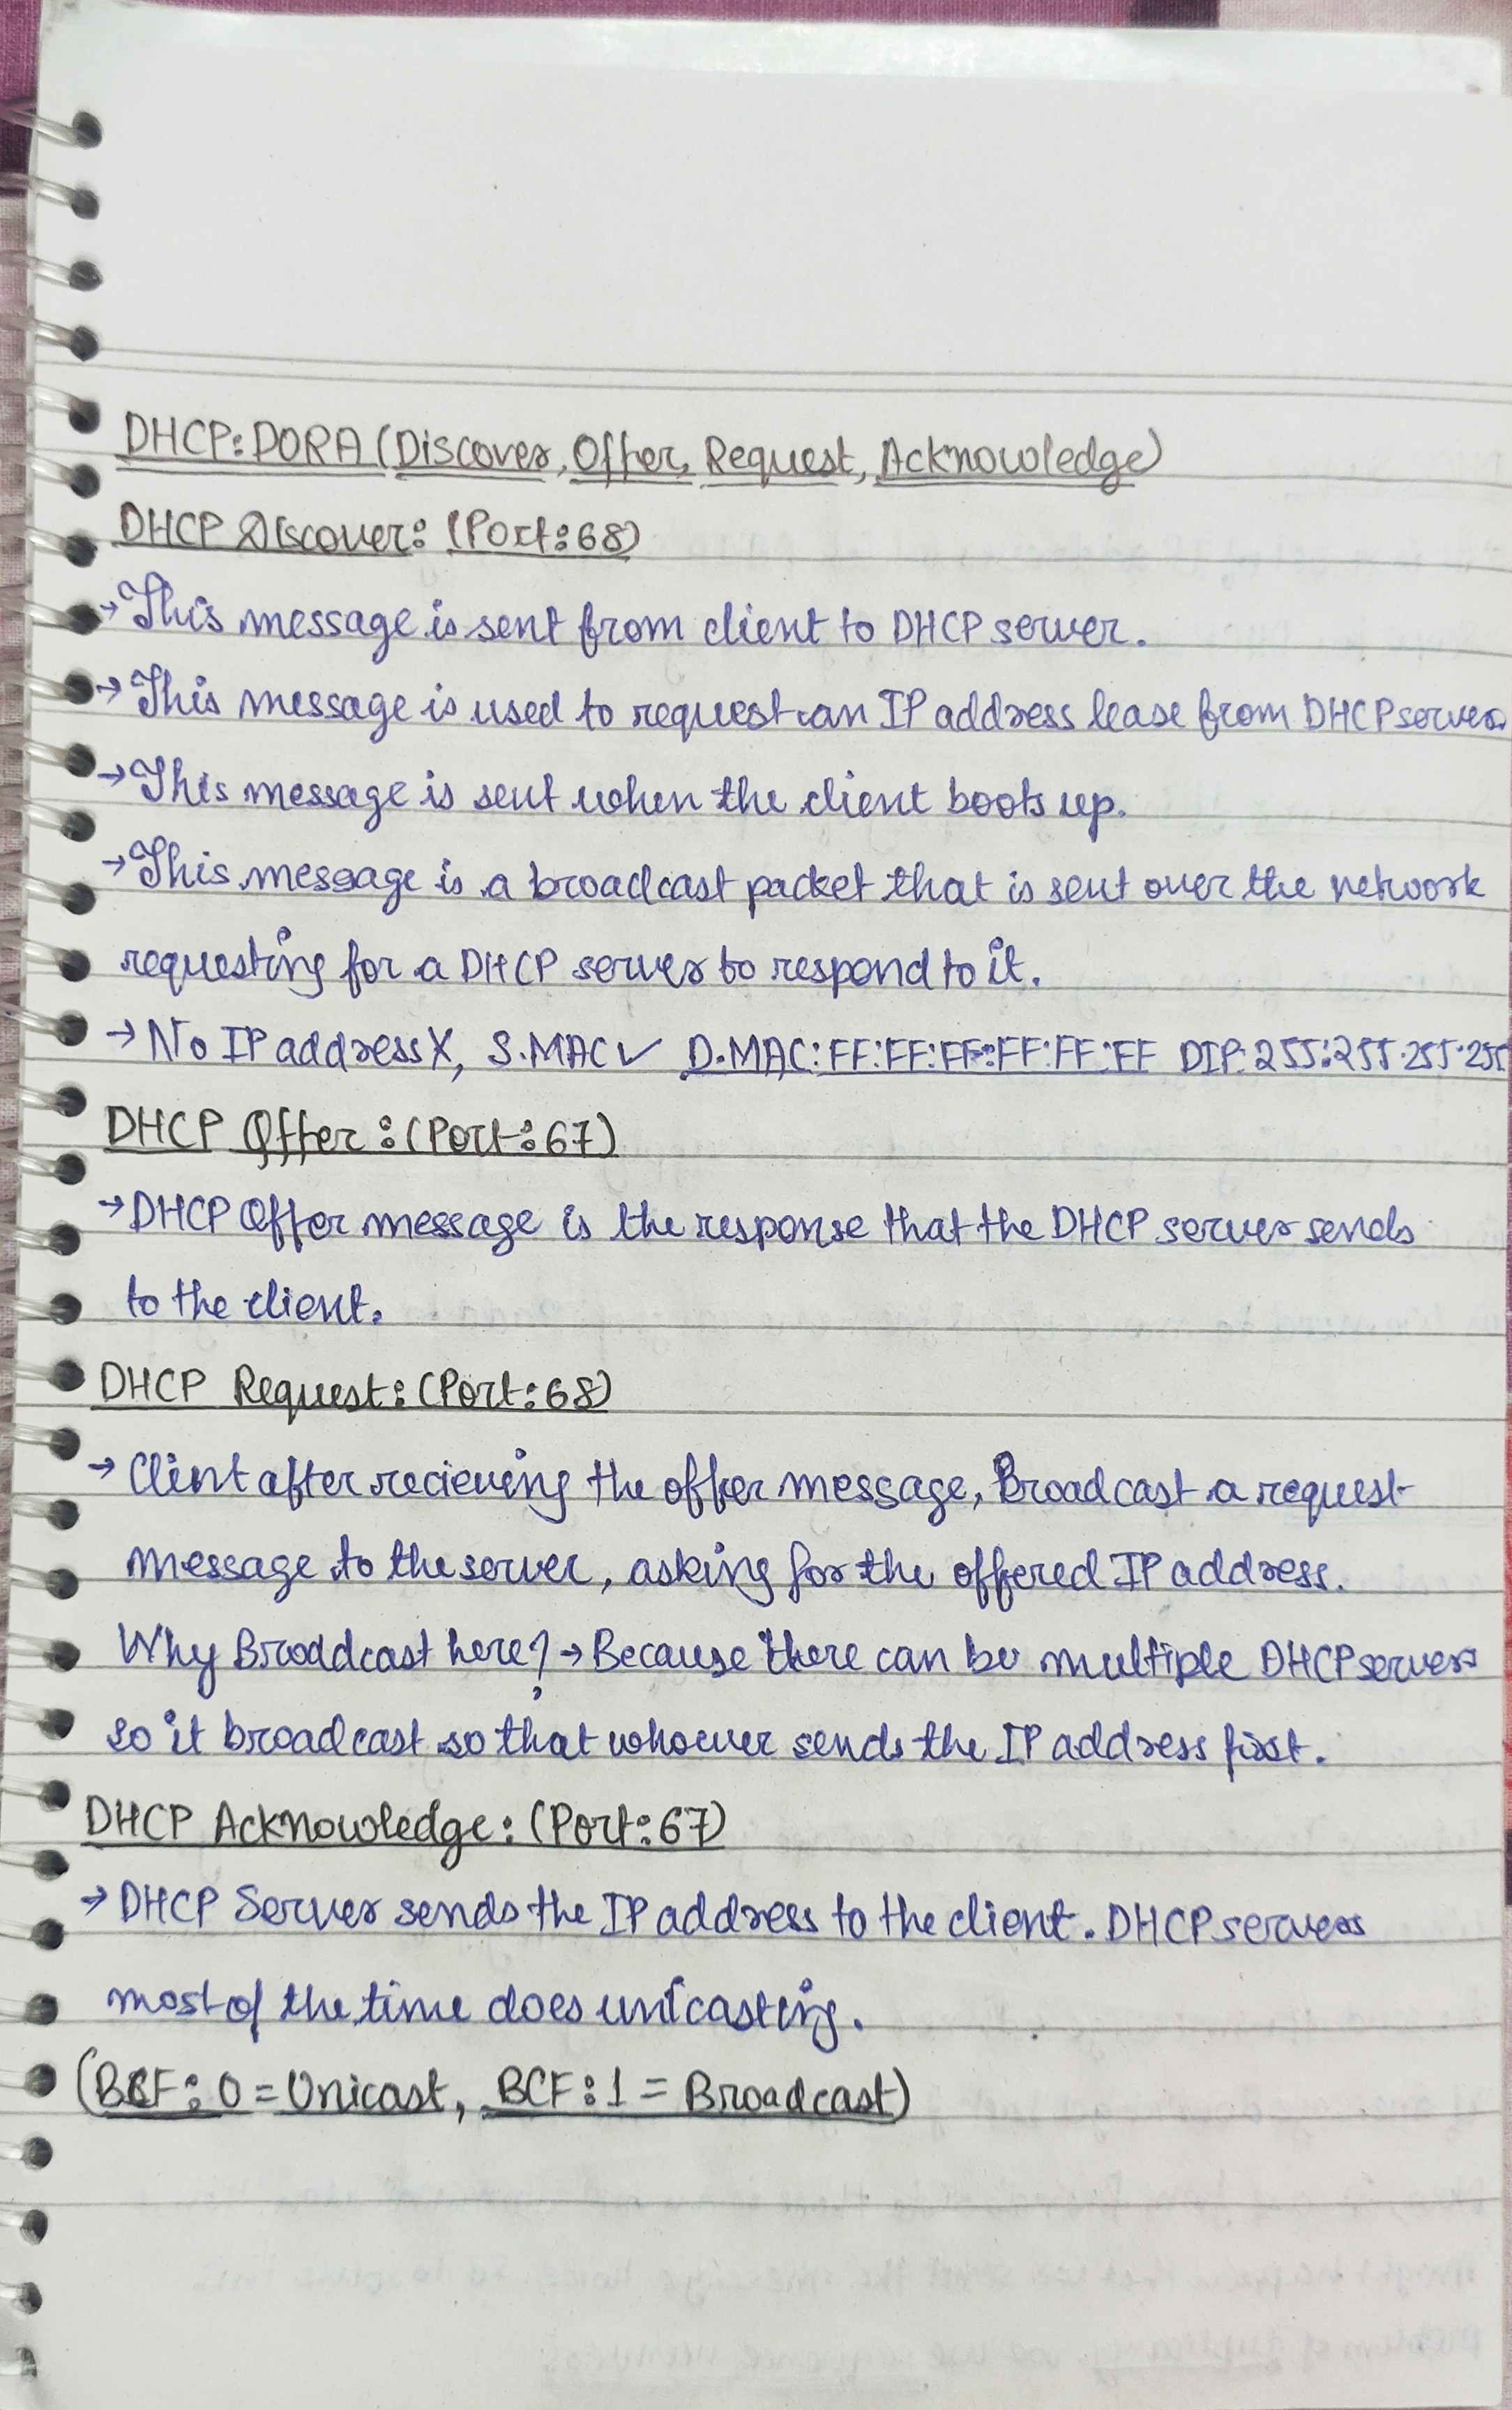 DHCP: DORA (Discover, Offer, Request, Acknowledge)
DHCP Discover: (Port: 68)
→ This message is sent from client to DHCP server.
→ This message is used to request an IP address lease from DHCP server
→ This message is sent when the client boots up.
→ This message is a broadcast packet that is sent over the network
requesting for a DHCP server to respond to it.
→ No IP address X, S.MAC ✓ D.MAC: FF:FF:FF:FF:FF:FF DIP: 255:255.255.255
DHCP Offer: (Port: 67)
→ DHCP Offer message is the response that the DHCP server sends
to the client.
DHCP Request: (Port: 68)
→ Clint after recieving the offer message, Broadcast a request
message to the server, asking for the offered IP address.
Why Broddcast here? → Because there can be multiple DHCP servers
so it broadcast so that whoever sends the IP address first.
DHCP Acknowledge: (Port: 67)
→ DHCP Server sends the IP address to the client. DHCP servers
most of the time does unicasting.
(BCF: 0 = Unicast, BCF: 1 = Broadcast)